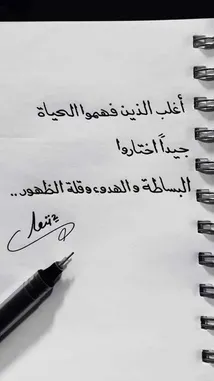 أغلب الذين فهموا الحياة
جيداً اختاروا
البساطة والهدوء وقلة الظهور..